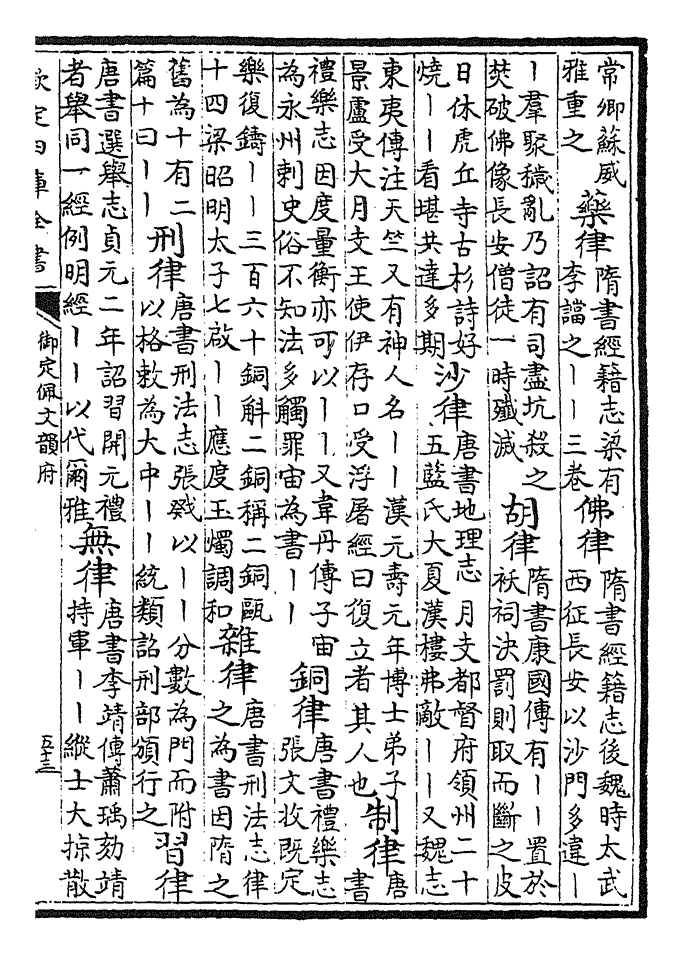 常卿蘇威
雅重之
藥律
隋書經籍志梁有
李譡之丨丨三卷
佛律
隋書經籍志後魏時太武
西征長安以沙門多違丨
丨羣聚穢亂乃詔有司盡坑殺之
焚破佛像長安僧徒一時殲滅
胡律
隋書康國傳有丨丨置於
祆祠決罰則取而斷之皮
日休虎丘寺古杉詩好
燒丨丨看堪共達多期
沙律
唐書地理志月支都督府領州二十
五藍氏大夏漢樓弗敵丨丨又魏志
東夷傳注天竺又有神人名丨丨漢元壽元年博士弟子
景盧受大月支王使伊存口受浮屠經曰復立者其人也
制律
唐
書
禮樂志因度量衡亦可以丨丨又韋丹傳子宙
為永州刺史俗不知法多觸罪宙為書丨丨
銅律
唐書禮樂志
張文收既定
樂復鑄丨丨三百六十銅斛二銅稱二銅甌
十四梁昭明太子七啟丨丨應度玉燭調和
雜律
唐書刑法志律
之為書因隋之
舊為十有二
篇十曰丨丨
刑律
唐書刑法志張戣以丨丨分數為門而附
以格敕為大中丨丨統類詔刑部頒行之
習律
唐書選舉志貞元二年詔習開元禮
者舉同一經例明經丨丨以代爾雅
無律
唐書李靖傳蕭瑀劾靖
持軍丨丨縱士大掠散
欽定四庫全書
御定佩文韻府
五十三